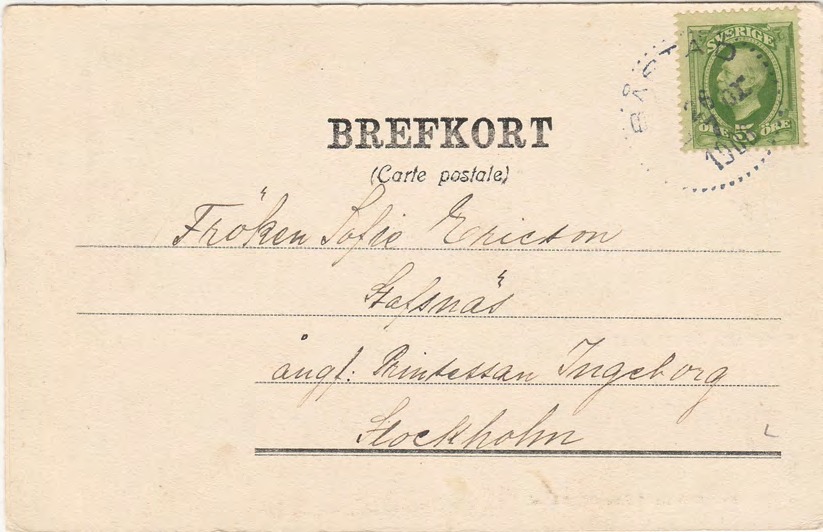 SVERIGE
BÅSTAD
ÖRE 5 ÖRE
BREFKORT
(Carte postale)
Fröken Sofie Ericson
Stafsnäs
ångf. Prinsessan Ingeborg
Stockholm